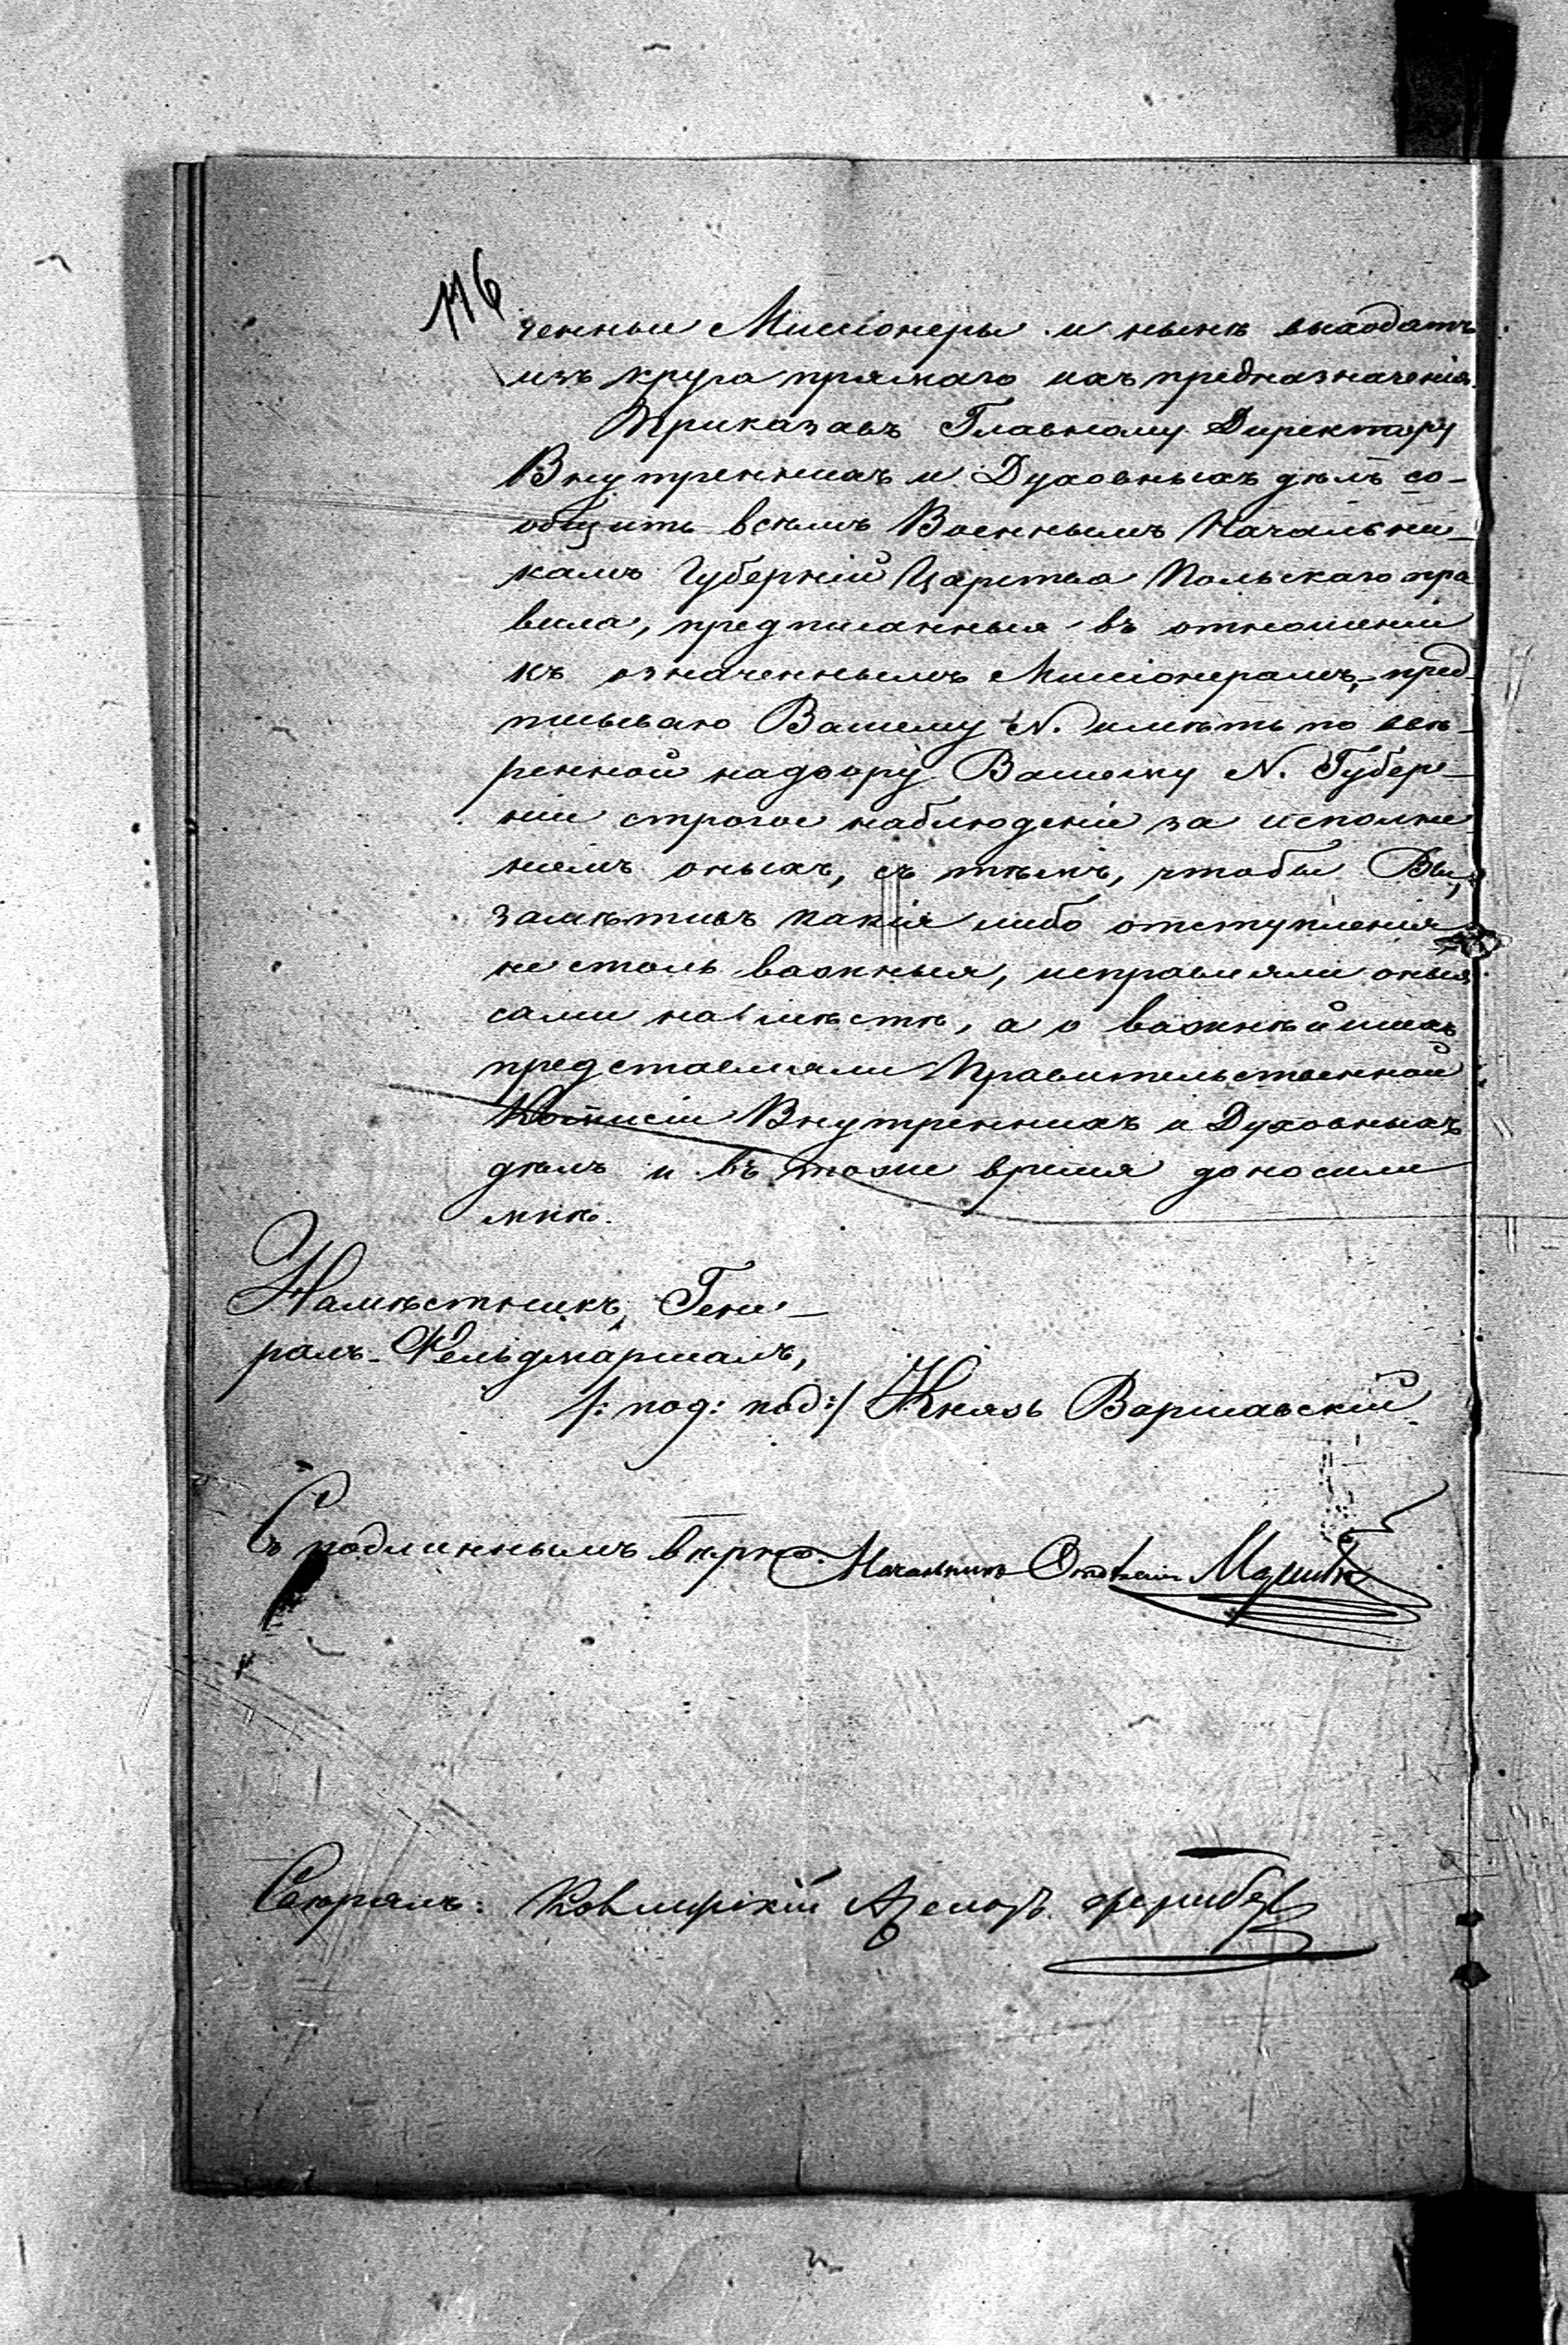 116
ченные Миссіонеры и нынѣ выходятъ
изъ круга прямаго ихъ предназначенія.
Приказавъ Главному Директору
Внутреннихъ и Духовныхъ дѣлъ со-
общить всѣмъ Военнымъ Начальни-
камъ Губерній Царства Польскаго пра
вила, предписанныя въ отношеніи
къ означеннымъ Миссіонерамъ, пред-
писываю Вашему N. имѣть по ввѣ-
ренной надзору Вашему N. Губер-
ніи строгое наблюденіе за исполне
ніемъ оныхъ, съ тѣмъ, чтобы Вы,
замѣтивъ какія либо отступленія
не столь важныя, исправляли оныя
сами на мѣстѣ, а о важнѣйшихъ
представляли Правительственной
Комисіи Внутреннихъ и Духовныхъ
дѣлъ и въ тоже время доносили
мнѣ.
Намѣстникъ, Гене-
ралъ-Фельдмаршалъ,
/: под: под:/ Князь Варшавскій
Съ подлиннымъ вѣрно. Начальникъ Отдѣленія